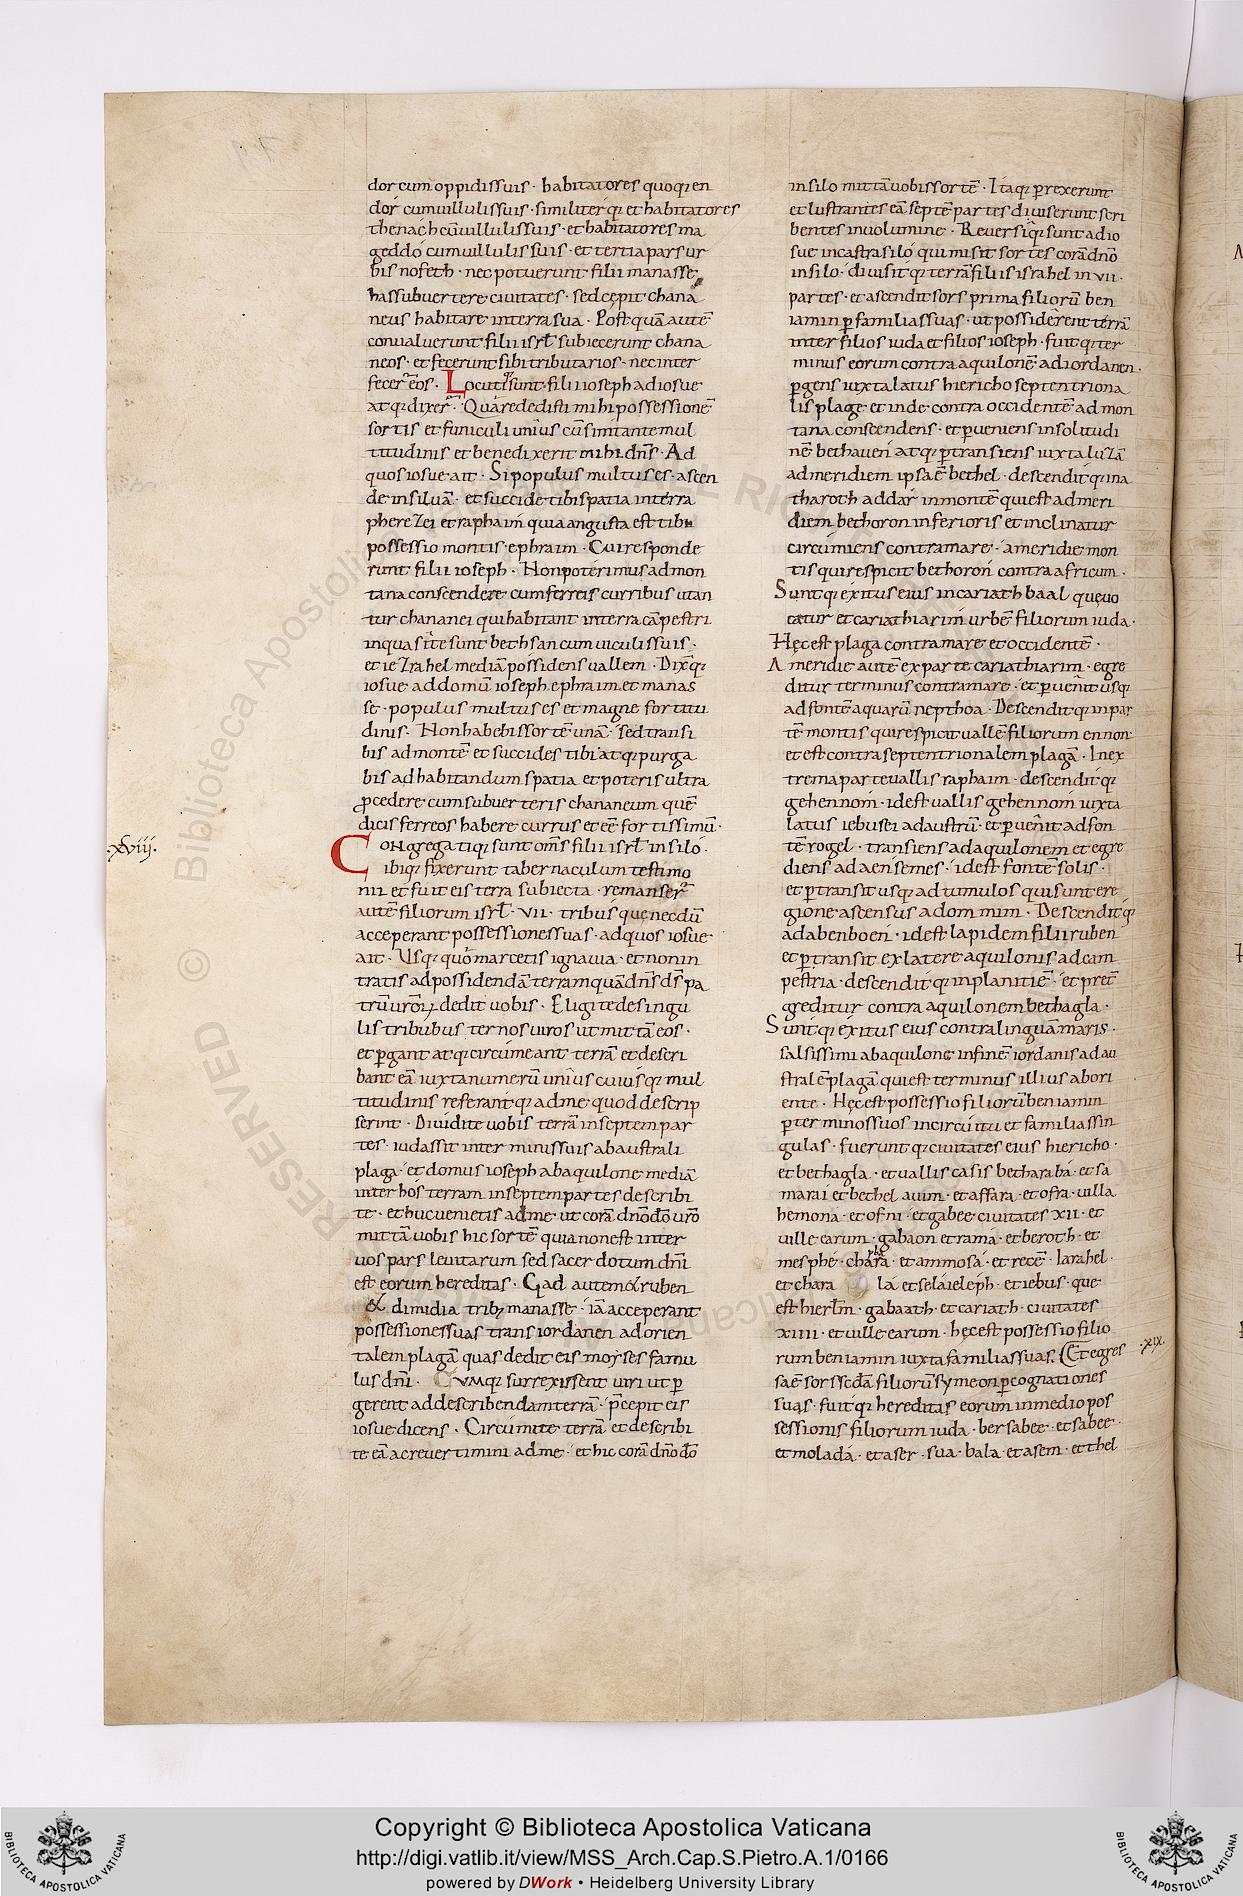 dor cum oppidis suis · habitatores quoq; en
dor cum uillulis suis · similiterq; et habitatores
thenach cũ uillulis suis · et habitatores ma
geddo cum uillulis suis · et tertia pars ur
bis nofeth · nec potuerunt filii manasse
has subuertere ciuitates · sed cępit chana
neus habitare in terra sua · Postquã autẽ
conualuerunt filii isrł subiecerunt chana
neos · et fecerunt sibi tributarios · nec inter
fecer̃ eos · Locutiq; sunt filii ioseph ad iosue
atq; dixer̃ · Quare dedisti mihi possessionẽ
sortis et funiculi unius cũ sim tantę mul
titudinis et benedixerit mihi dñs · Ad
quos iosue ait · Si populus multus es · ascen
de in siluã · et succide tibi spatia in terra
pherezei et raphaim quia angusta est tibi
possessio montis ephraim · Cui responde
runt filii ioseph · Non poterimus ad mon
tana conscendere cum ferreis curribus utan
tur chananei qui habitant in terra cãpestri
in qua sitę sunt bethsan cum uiculis suis ·
et iezrahel mediã possidens uallem · Dixitq;
iosue ad domũ ioseph ephraim et manas
se · populus multus es et magnę fortitu
dinis · Non habebis sortẽ unã · sed transi
bis ad montẽ et succides tibi atq; purga
bis ad habitandum spatia et poteris ultra
procedere cum subuerteris chananeum quẽ
dicis ferreos habere currus et eẽ fortissimũ ·
xviii.
Congregatiq; sunt om̃s filii isrł in silo ·
ibiq; fixerunt tabernaculum testimo
nii et fuit eis terra subiecta · remanser̃
autẽ filiorum isrł · vii · tribus quę necdũ
acceperant possessiones suas · ad quos iosue
ait · Usq;quo marcetis ignauia · et non in
tratis ad possidendã terram quã dñs ds̃ pa
trũ urõꝝ dedit uobis · Eligite de singu
lis tribubus ternos uiros ut mittã eos ·
et ꝑgant atq; circumeant terrã et descri
bant eã iuxta numerũ unius cuiusq; mul
titudinis referantq; ad me quod descrip
serint · Diuidite uobis terrã in septem par
tes · iudas sit in terminis suis ab australi
plaga · et domus ioseph ab aquilone mediã
inter hos terram in septem partes describi
te · et huc uenietis ad me ut corã dño dõ urõ
mittã uobis hic sortẽ quia non est inter
uos pars leuitarum sed sacerdotum dñi
est eorum hereditas · Gad autem & ruben
& dimidia tribꝫ manasse · iã acceperant
possessiones suas trans iordanen ad orien
talem plagã quas dedit eis moyses famu
lus dñi · Cumq; surrexissent uiri ut ꝑ
gerent ad describendam terrã · p̃cepit eis
iosue dicens · Circumite terrã et describi
te eã ac reuertimini ad me · et hic corã dño dõ
in silo mittã uobis sortẽ · Itaq; ꝑrexerunt
et lustrantes eã septẽ partes diuiserunt scri
bentes in uolumine · Reuersiq; sunt ad io
sue in castra silo qui misit sortes corã dño
in silo · diuisitq; terrã filiis israhel in vii ·
partes · et ascendit sors prima filiorũ ben
iamin ꝑ familias suas · ut possiderent terrã
inter filios iuda et filios ioseph · fuitq; ter
minus eorum contra aquilonẽ ad iordanen ·
ꝑgens iuxta latus hiericho septentriona
lis plagę et inde contra occidentẽ ad mon
tana conscendens · et ꝑueniens in solitudi
nẽ bethauen atq; ꝑtransiens iuxta luzã
ad meridiem ipsa ẽ bethel · descenditq; in a
tharoth addar in montẽ qui est ad meri
diem bethoron inferioris et inclinatur
circumiens contra mare · a meridie mon
tis qui respicit bethoron contra africum ·
Suntq; exitus eius in cariath baal quę uo
catur et cariathiarim urbẽ filiorum iuda ·
Hęc est plaga contra mare et occidentẽ ·
A meridie autẽ ex parte cariathiarim · egre
ditur terminus contra mare · et ꝑuenit usq;
ad fontẽ aquarũ nepthoa · Descenditq; in par
tẽ montis qui respicit uallẽ filiorum ennon ·
et est contra septentrionalem plagã · In ex
trema parte uallis raphaim · descenditq;
gehennom · id est uallis gehennom iuxta
latus iebusei ad austrũ · et ꝑuenit ad fon
tẽ rogel · transiens ad aquilonem et egre
diens ad aensemes · id est fontẽ solis ·
et ꝑtransit usq; ad tumulos qui sunt e re
gione ascensus adommim · Descenditq;
ad abenboen · id est lapidem filii ruben
et ꝑtransit ex latere aquilonis ad cam
pestria · descenditq; in planitiẽ · et pręt
greditur contra aquilonem bethagla ·
Suntq; exitus eius contra linguã maris ·
salsissimi ab aquilone in finẽ iordanis ad au
stralẽ plagã qui est terminus illius ab ori
ente · Hęc est possessio filiorũ beniamin
ꝑ terminos suos in circuitu et familias sin
gulas · fueruntq; ciuitates eius hiericho ·
et bethagla · et uallis casis betharaba · et sa
marai et bethel auim · et affara · et ofra · uilla
hemona · et ofni · et gabee ciuitates xii · et
uille earum · gabaon et rama · et beroth · et
mesphe · chafra · et ammosa · et recẽ · iarahel ·
et chara la et sela ieleph · et iebus · que
est hierłm · gabaath · et cariath · ciuitates
xiiii · et uille earum · hęc est possessio filio
rum beniamin iuxta familias suas. Et egres
·xix.
sa ẽ sors scd̃a filiorũ symeon ꝑ cognationes
suas · fuitq; hereditas eorum in medio pos
sessionis filiorum iuda · bersabee · et sabee ·
et molada · et aser · sua · bala · et asem · et thel
Copyright © Biblioteca Apostolica Vaticana
http://digi.vatlib.it/view/MSS_Arch.Cap.S.Pietro.A.1/0166
powered by DWork • Heidelberg University Library